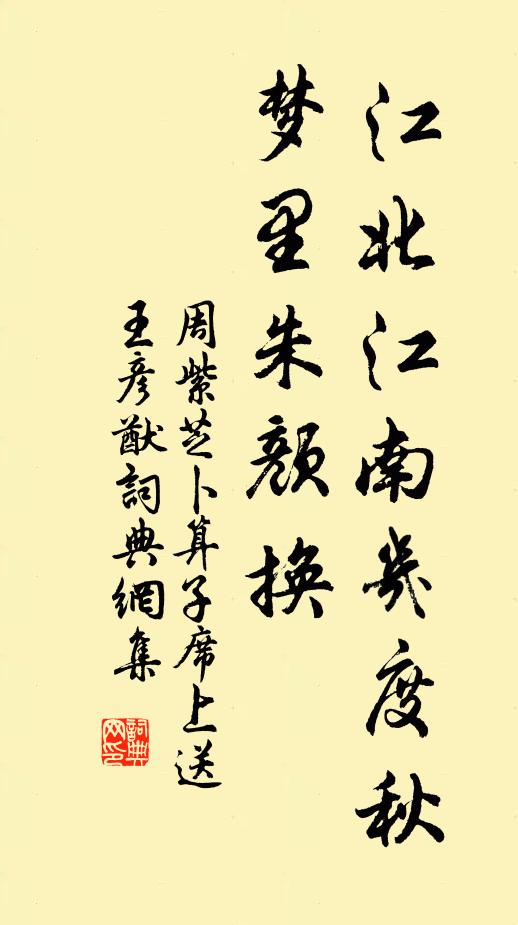 江北江南幾度秋
梦里朱颜換
周紫芝卜算子席上送
王彦猷詞典網集
詞典
网印